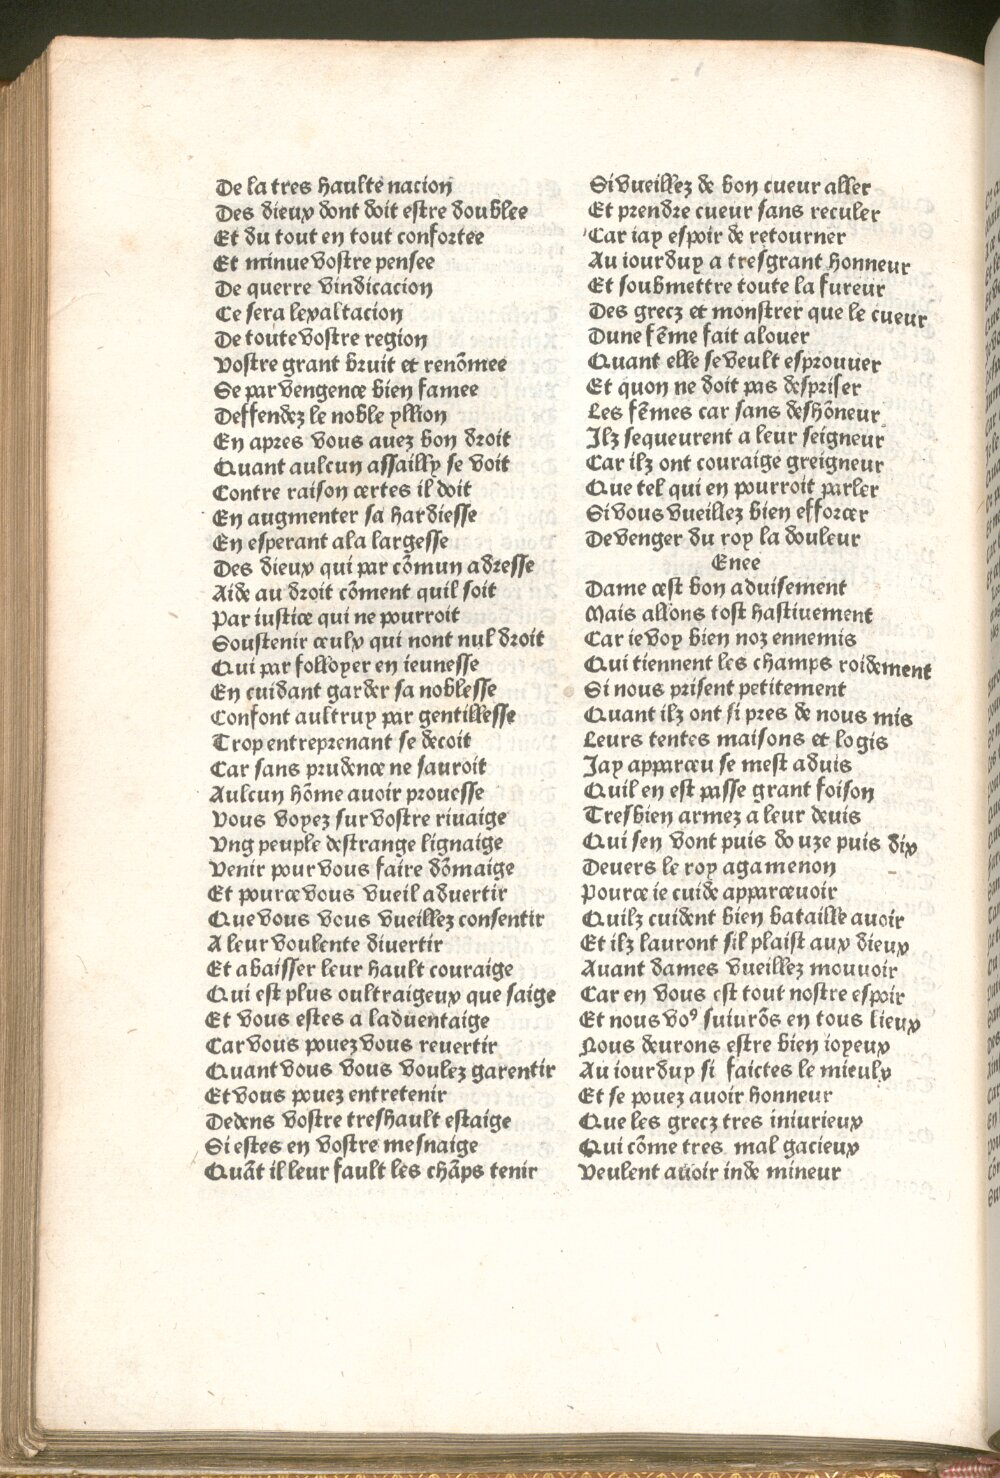 De la tres haulte nacion
Des dieux dont doit estre doublee
Et du tout en tout confortee
Et minue vostre pensee
De querre vindicacion
Ce sera lexaltacion
De toute vostre region
Vostre grant bruit et renõmee
Se par vengence bien famee
Deffendez le noble yllion
En apres vous auez bon droit
Quant aulcun assailly se voit
Contre raison certes il doit
En augmenter sa hardiesse
En esperant ala largesse
Des dieux qui par cõmun adresse
Aide au droit cõment quil soit
Par iustice qui ne pourroit
Soustenir ceulx qui nont nul droit
Qui par folloyer en ieunesse
En cuidant garder sa noblesse
Confont aultruy par gentillesse
Trop entreprenant se decoit
Car sans prudence ne sauroit
Aulcun hõme auoir prouesse
Vous voyez sur vostre riuaige
Vng peuple destrange lignaige
Venir pour vous faire dõmaige
Et pource vous vueil aduertir
Que vous vous vueillez consentir
A leur voulente diuertir
Et abaisser leur hault couraige
Qui est plus oultraigeux que saige
Et vous estes a laduentaige
Car vous pouez vous reuertir
Quant vous vous voulez garentir
Et vous pouez entretenir
Dedens vostre treshault estaige
Si estes en vostre mesnaige
Quãt il leur fault les chãps tenir
Si vueillez de bon cueur aller
Et prendre cueur sans reculer
Car iay espoir de retourner
Au iourduy a tresgrant honneur
Et soubmettre toute la fureur
Des grecz et monstrer que le cueur
Dune fẽme fait alouer
Quant elle se veult esprouuer
Et quon ne doit pas despriser
Les fẽmes car sans deshõneur
Ilz sequeurent a leur seigneur
Car ilz ont couraige greigneur
Que tel qui en pourroit parler
Si vous vueillez bien efforcer
De venger du roy la douleur
Enee
Dame cest bon aduisement
Mais allons tost hastiuement
Car ie voy bien noz ennemis
Qui tiennent les champs roidement
Si nous prisent petitement
Quant ilz ont si pres de nous mis
Leurs tentes maisons et logis
Jay apparceu se mest aduis
Quil en est passe grant foison
Tresbien armez a leur deuis
Qui sen vont puis do uze puis dix
Deuers le roy agamenon
Pource ie cuide apparceuoir
Quilz cuident bien bataille auoir
Et ilz lauront sil plaist aux dieux
Auant dames vueillez mouuoir
Car en vous est tout nostre espoir
Et nous voꝰ suiurõs en tous lieux
Nous deurons estre bien ioyeux
Au iourduy si faictes le mieulx
Et se pouez auoir honneur
Que les grecz tres iniurieux
Qui cõme tres mal gacieux
Veulent auoir inde mineur